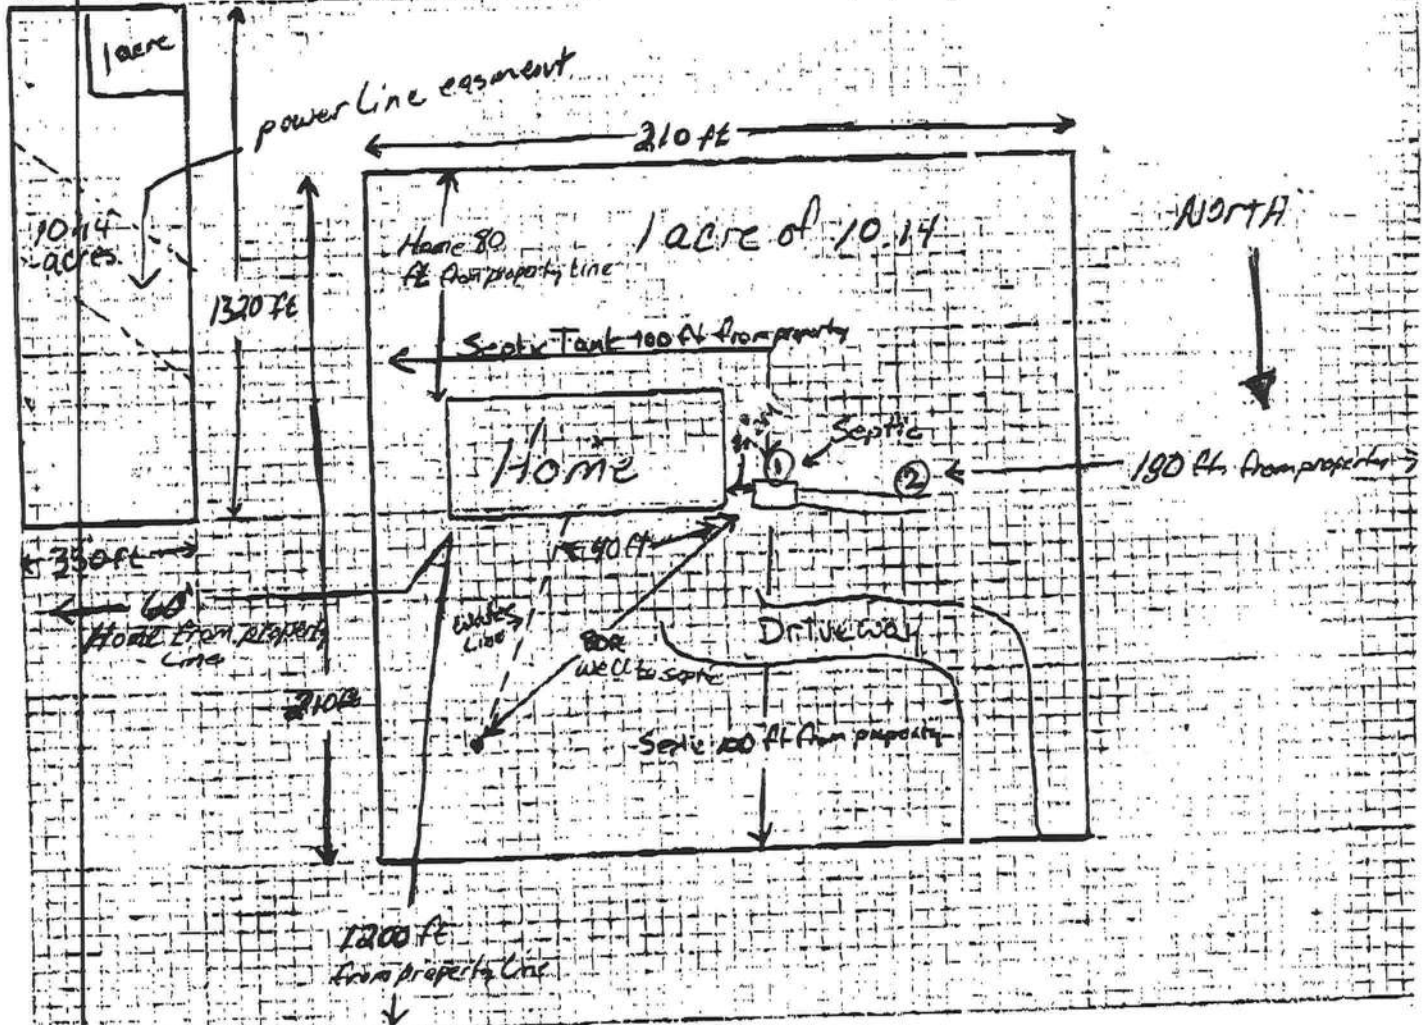 1 acre
power Line easmeut
210 ft
10.14
acres
1320 ft
Home 80
ft from property Line
1 acre of 10.14
NORTH
Septic Tank 100 ft from property
Home
Septic
1
2
190 ft from property
350 ft
60'
Home from property
Line
40 ft
Water
Line
80ft
well to septic
Driveway
210 ft
Septic 100 ft from property
1200 ft
from property Line